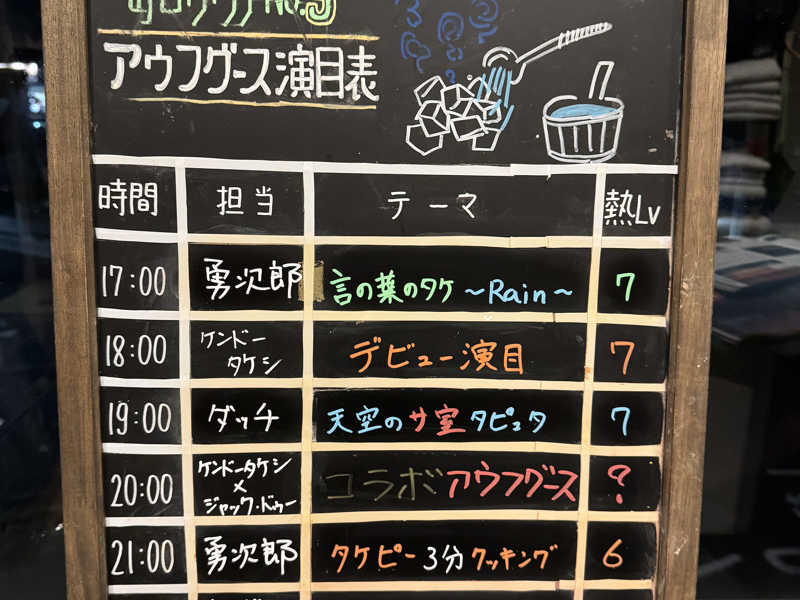 アウフグース演目表
時間 担当 テーマ 熱Lv
17:00 勇次郎 言の葉のタケ ～Rain～ 7
18:00 ケンドー デビュー演目 7
タケシ
19:00 ダッチ 天空のサ室 タピュタ 7
20:00 ケンドータケシ コラボアウフグース ?
×
ジャック・ドゥー
21:00 勇次郎 タケピー3分クッキング 6